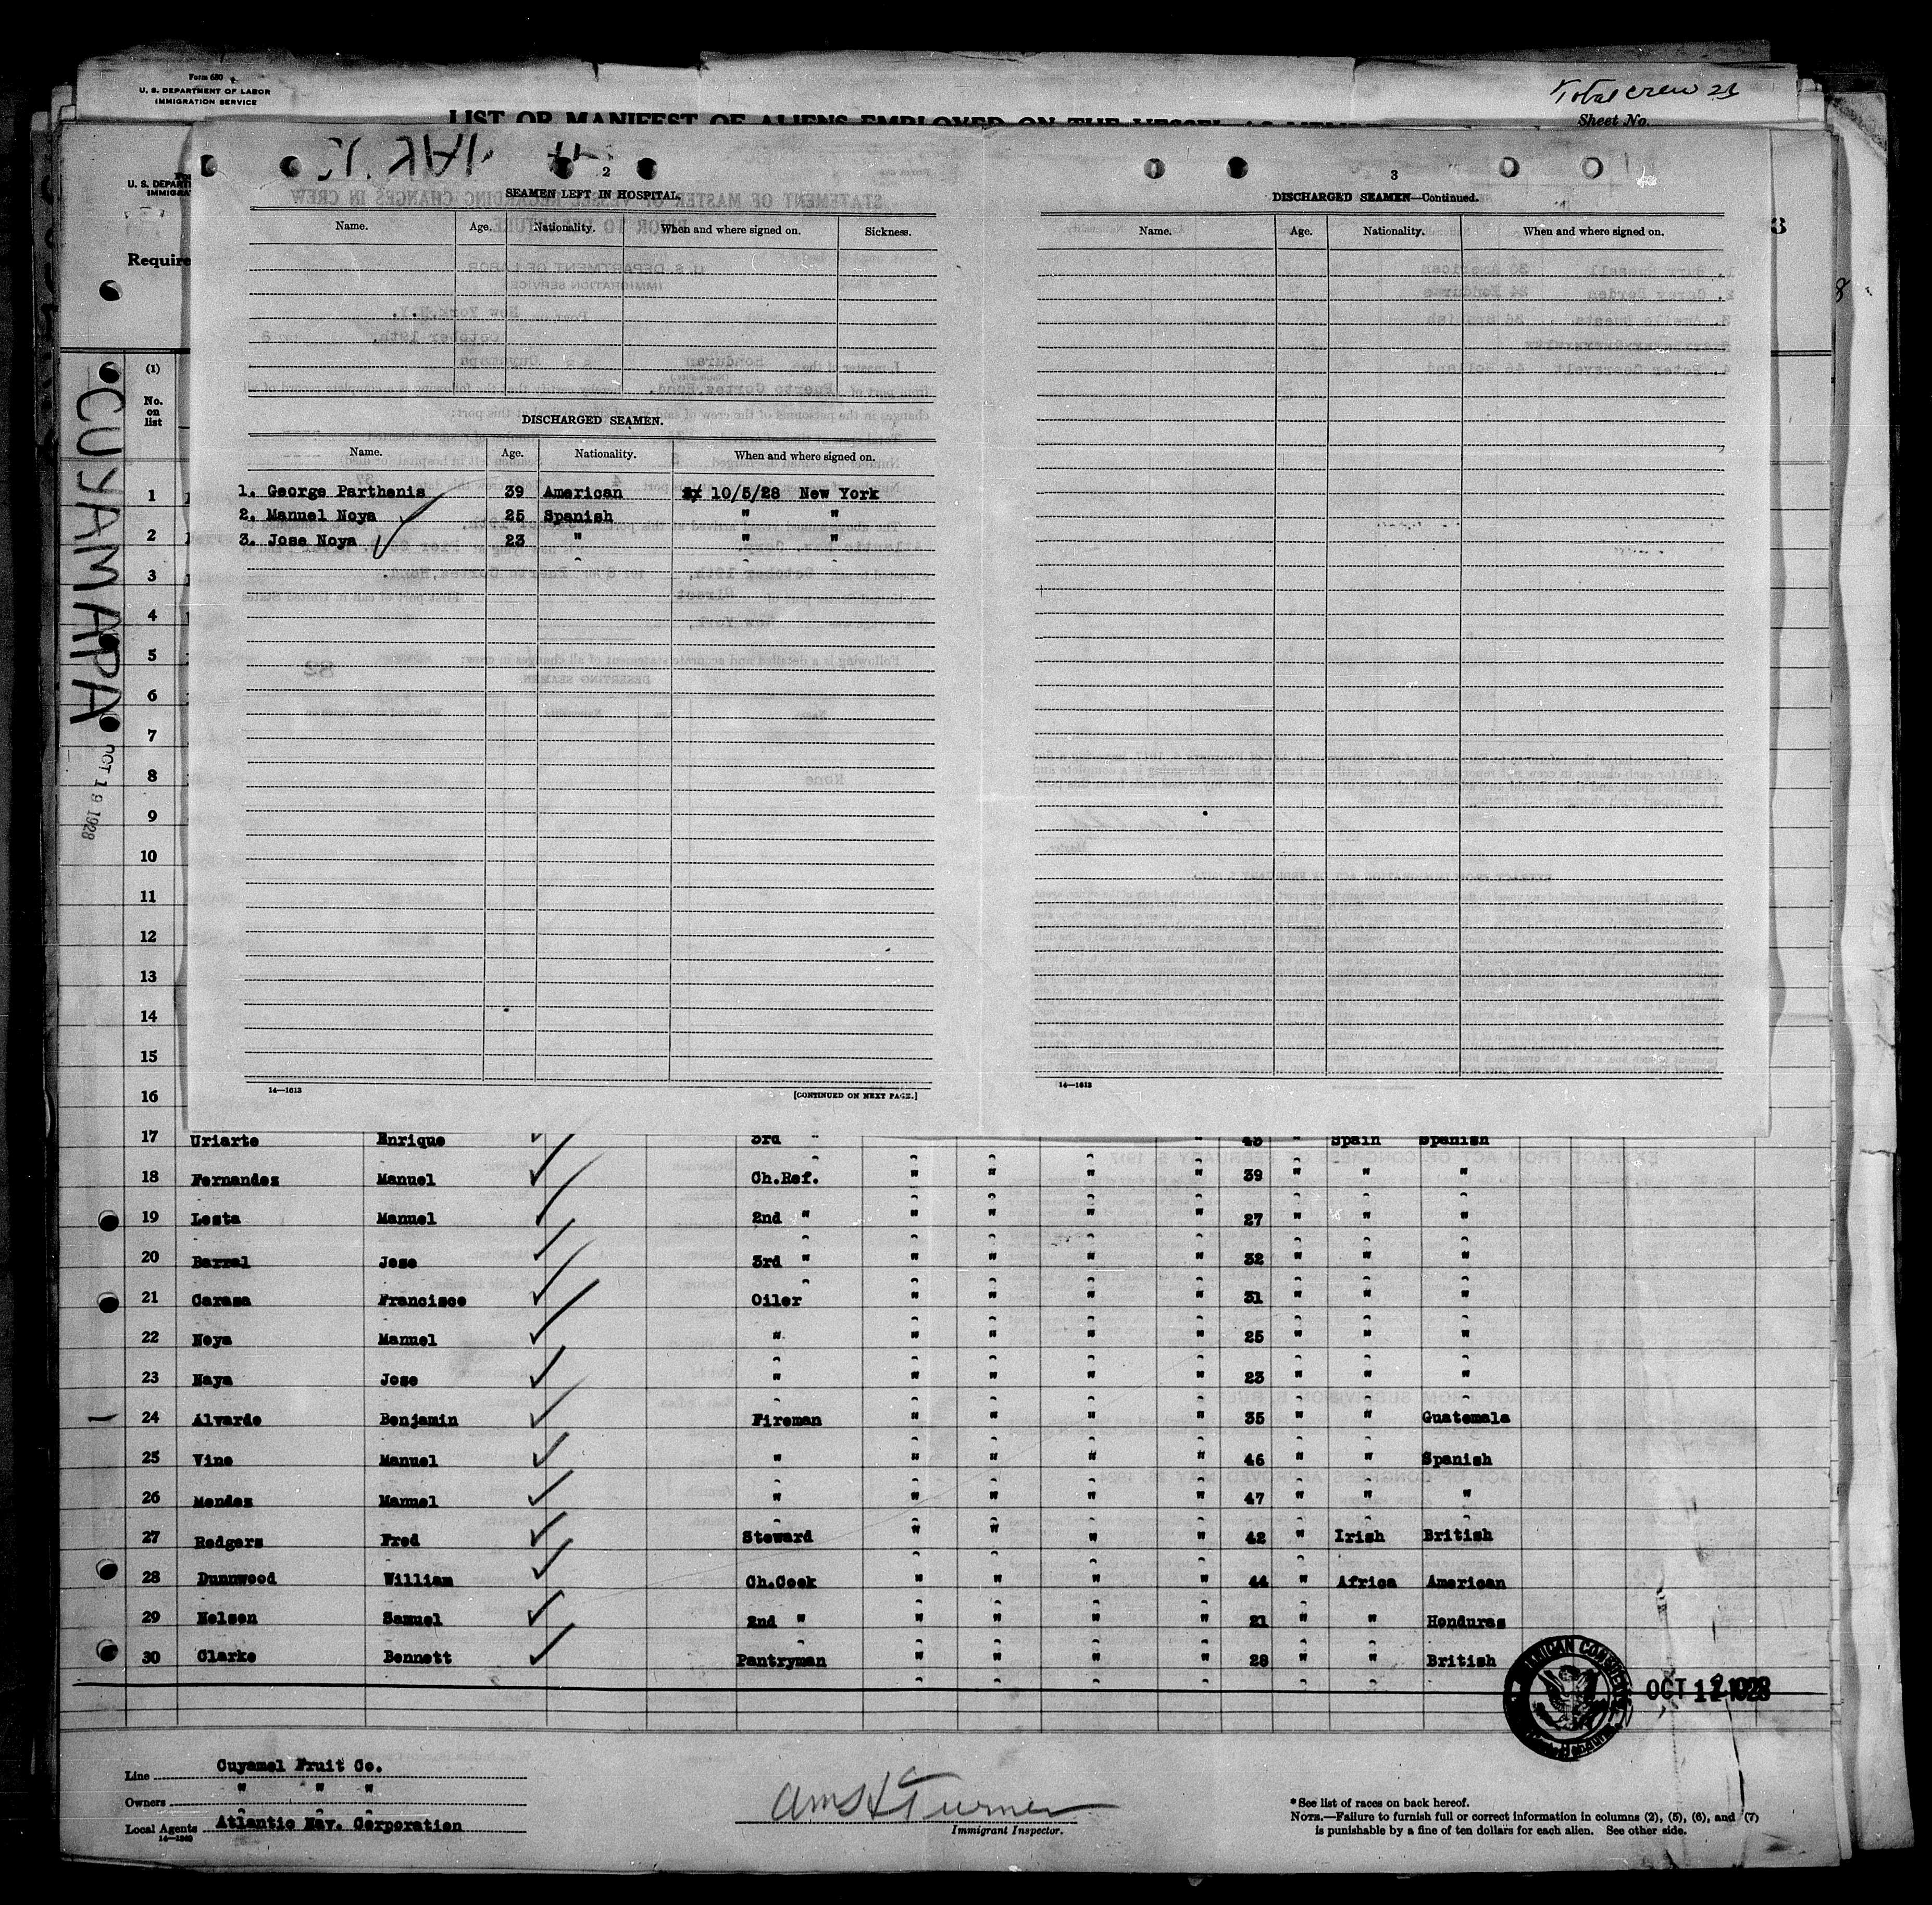 Form 680
U. S. DEPARTMENT OF LABOR
IMMIGRATION SERVICE
Total crew
Sheet No.
LIST OR MANIFEST OF ALIENS EMPLOYED ON THE VESSEL AS
U. S. DEPART
IMMIGRA
Require
3
8
(1)
No.
on
list
CUYAMAPA
OCT 19 1928
2
SEAMEN LEFT IN HOSPITAL.
Name. Age. Nationality. When and where signed on. Sickness.
DISCHARGED SEAMEN.
Name. Age. Nationality. When and where signed on.
1. George Parthenis 39 American 10/5/28 New York
2. Manuel Noya 25 Spanish " "
3. Jose Noya 23 " " "
14—1613 [CONTINUED ON NEXT PAGE.]
3
DISCHARGED SEAMEN—Continued.
Name. Age. Nationality. When and where signed on.
14—1613
1
2
3
4
5
6
7
8
9
10
11
12
13
14
15
16
17 Uriarte Enrique 3rd " " 43 " Spain Spanish
18 Fernandez Manuel Ch.Ref. " " " " 39 " " "
19 Lesta Manuel 2nd " " " " " 27 " " "
20 Barral Jose 3rd " " " " " 32 " " "
21 Carasa Francisco Oiler " " " " 31 " " "
22 Noya Manuel " " " " " 25 " " "
23 Naya Jose " " " " " 23 " " "
24 Alvardo Benjamin Fireman " " " " 35 " " Guatemala
25 Vino Manuel " " " " " 46 " " Spanish
26 Mendez Manuel " " " " " 47 " " "
27 Rodgers Fred Steward " " " " 42 " Irish British
28 Dunnwood William Ch.Cook " " " " 44 " Africa American
29 Nelson Samuel 2nd " " " " " 21 " " Honduras
30 Clarke Bennett Pantryman " " " " 28 " " British
AMERICAN
OCT 1 1928
Line Cuyamel Fruit Co.
Owners " " "
Local Agents Atlantic Nav. Corporation
14—1240
Turner
Immigrant Inspector.
* See list of races on back hereof.
NOTE.—Failure to furnish full or correct information in columns (2), (5), (6), and (7)
is punishable by a fine of ten dollars for each alien. See other side.